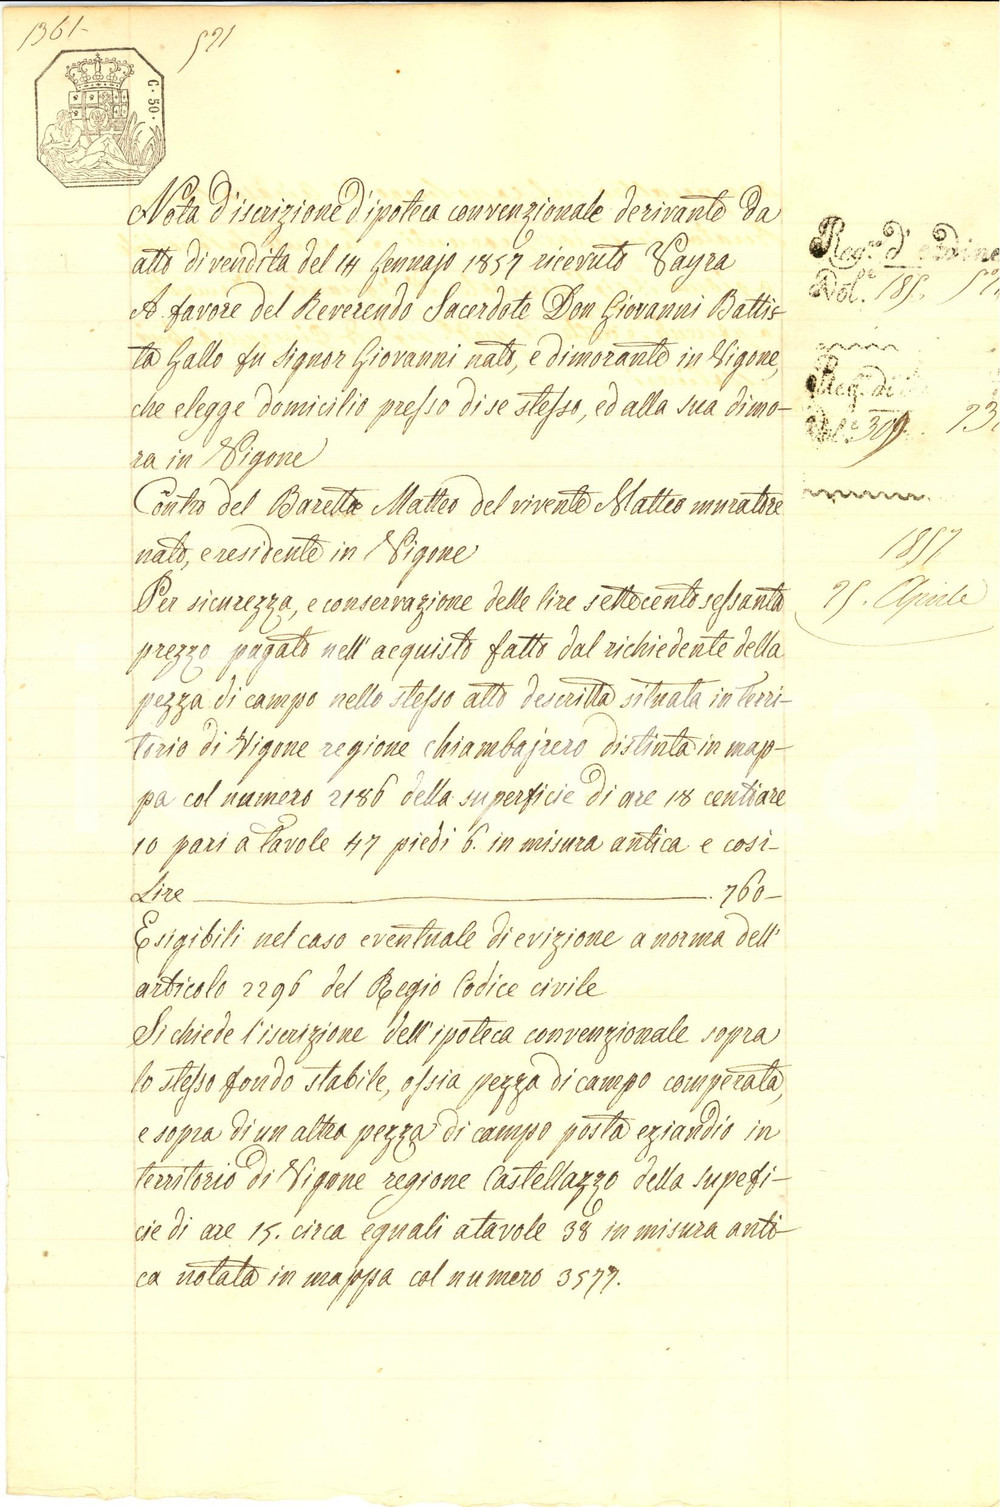 1361-
571
C. 50.
Nota d'iscrizione d'ipoteca convenzionale derivante da
atto di vendita del 14 Gennajo 1857 ricevuto Vayra
A favore del Reverendo Sacerdote Don Giovanni Battis-
ta Gallo fu signor Giovanni nato, e dimorante in Vigone,
che elegge domicilio presso di se stesso, ed alla sua dimo-
ra in Vigone
Contro del Baretta Matteo del vivente Matteo muratore
nato, e residente in Vigone
Per sicurezza, e conservazione delle lire settecento sessanta
prezzo pagato nell'acquisto fatto dal richiedente della
pezza di campo nello stesso atto descritta situata in terri-
torio di Vigone regione chiambajrero distinta in map-
pa col numero 2186 della superficie di are 18 centiare
10 pari a tavole 47 piedi 6. in misura antica e cosi-
Lire 760-
Esigibili nel caso eventuale di evizione a norma dell'
articolo 2296 del Regio Codice civile
Si chiede l'iscrizione dell'ipoteca convenzionale sopra
lo stesso fondo stabile, ossia pezza di campo comperata,
e sopra di un altra pezza di campo posta eziandio in
territorio di Vigone regione Castellazzo della supefi-
cie di are 15. circa eguali a tavole 38 in misura anti-
ca notata in mappa col numero 3577.
Reg.ro d'ordine
Vol.e 185.
Reg. di
Vol.e 309.
1857
25. Aprile